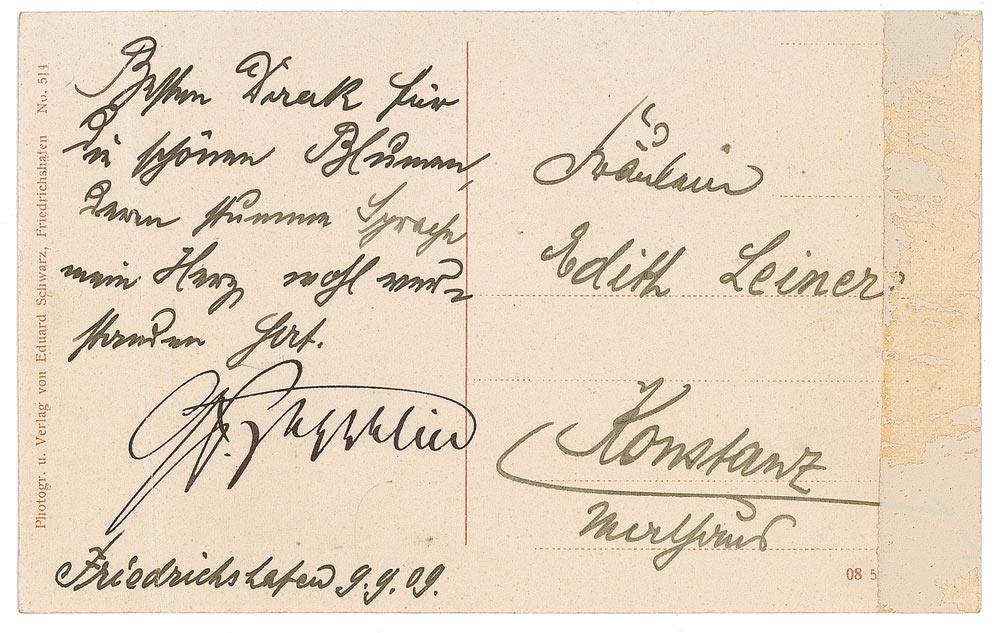 Photogr. u. Verlag von Eduard Schwarz, Friedrichshafen No. 514
Besten Dank für
die schönen Blumen,
deren stumme Sprache
mein Herz wohl ver-
standen hat.
Gf. Zeppelin
Friedrichshafen 9.9.09.
Fräulein
Edith Leiner
Konstanz
08 5